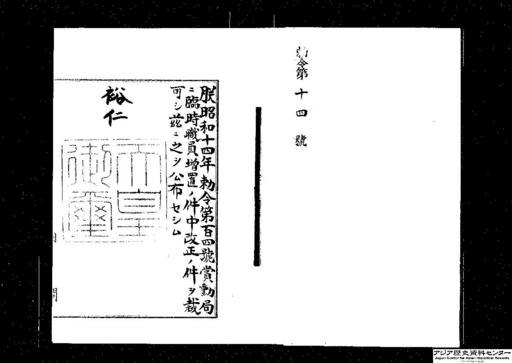 勅令第十四號
朕昭和十四年勅令第百四號賞勳局
ニ臨時職員增置ノ件中改正ノ件ヲ裁
可シ茲ニ之ヲ公布セシム
裕仁
天皇
御璽
アジア歴史資料センター
Japan Center for Asian Historical Records